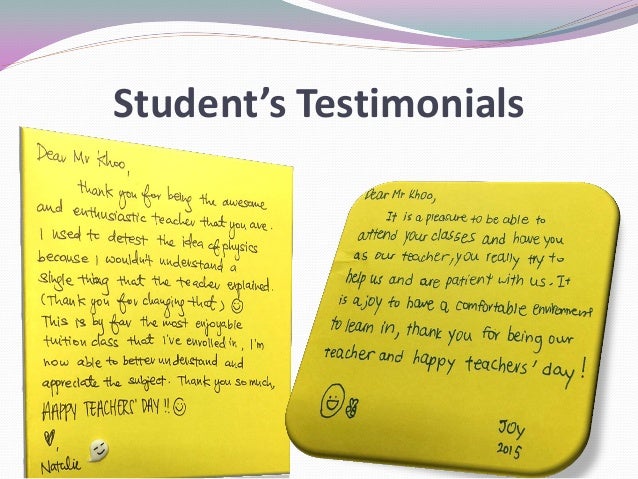 Student's Testimonials
Dear Mr Khoo,
thank you for being the awesome
and enthusiastic teacher that you are.
I used to detest the idea of physics
because I wouldn't understand a
single thing that the teacher explained.
(Thank you for changing that)
This is by far the most enjoyable
tuition class that I've enrolled in, I'm
now able to better understand and
appreciate the subject. Thank you so much,
HAPPY TEACHERS' DAY!!
Natalie
Dear Mr Khoo,
It is a pleasure to be able to
attend your classes and have you
as our teacher, you really try to
help us and are patient with us. It
is a joy to have a comfortable environment
to learn in, thank you for being our
teacher and happy teachers' day!
JOY
2015